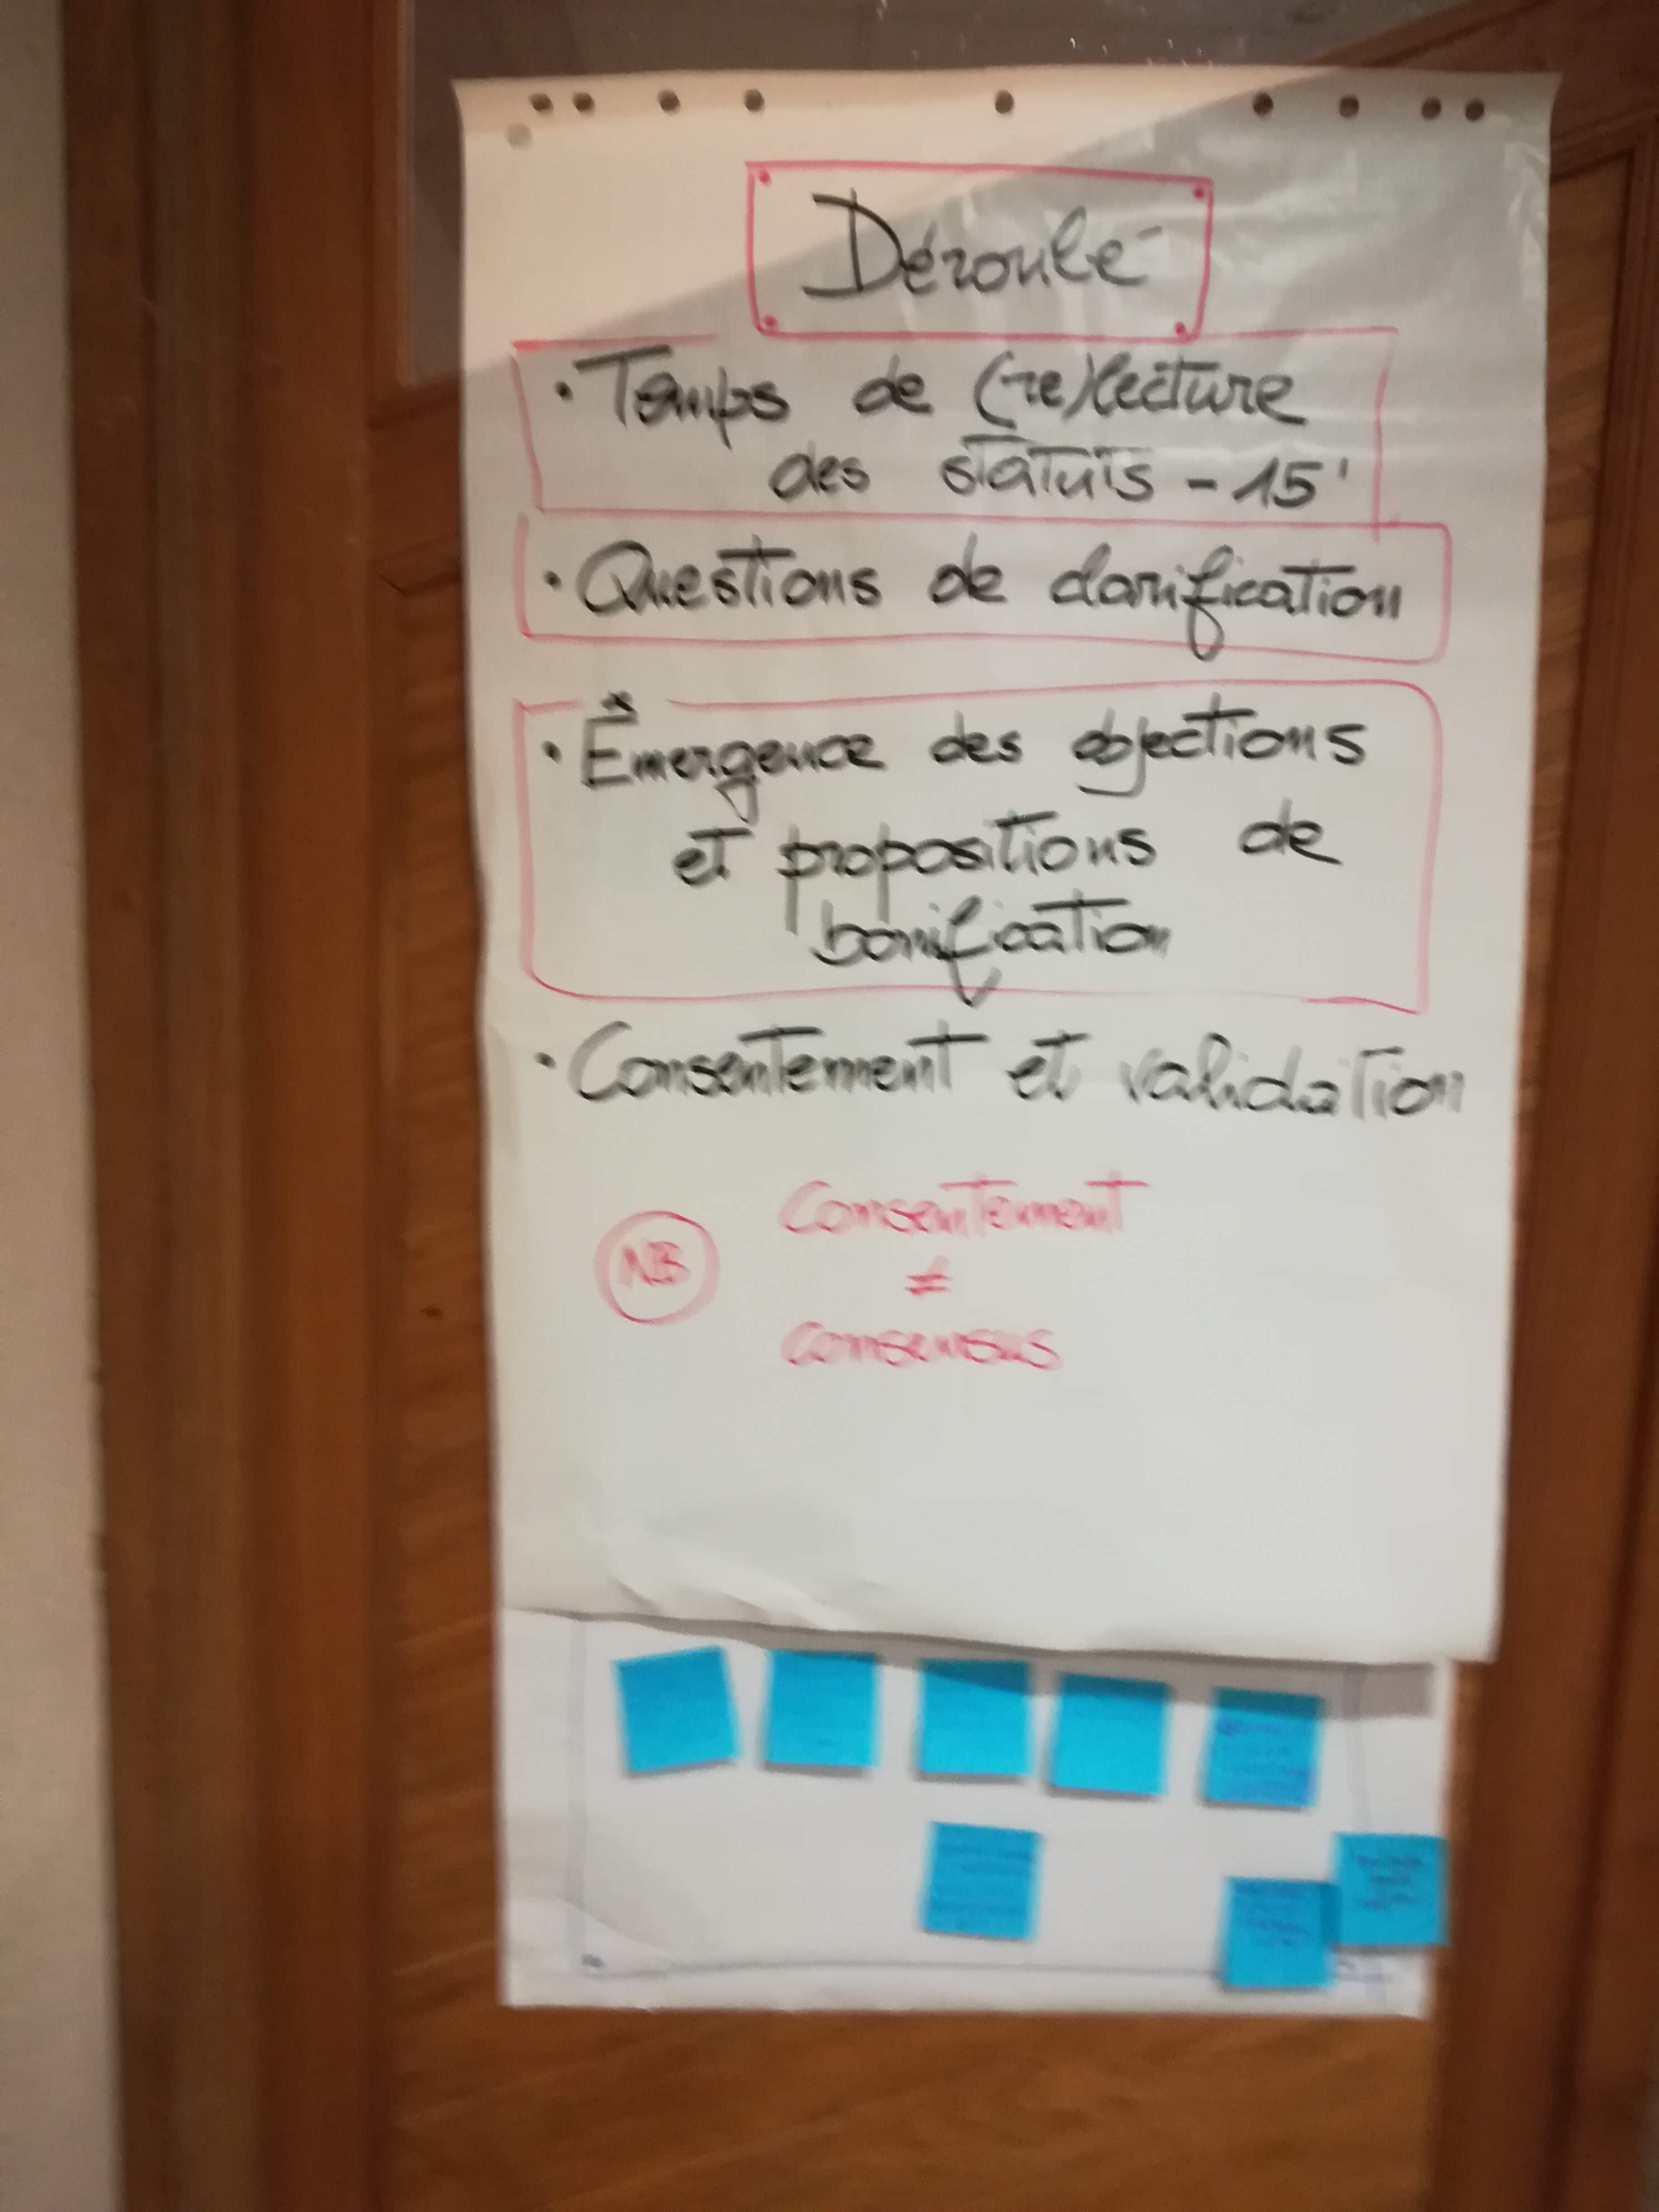 Déroulé
• Temps de (re)lecture
des statuts - 15'
• Questions de clarification
• Émergence des objections
et propositions de
bonification
• Consentement et validation
NB
Consentement
≠
Consensus